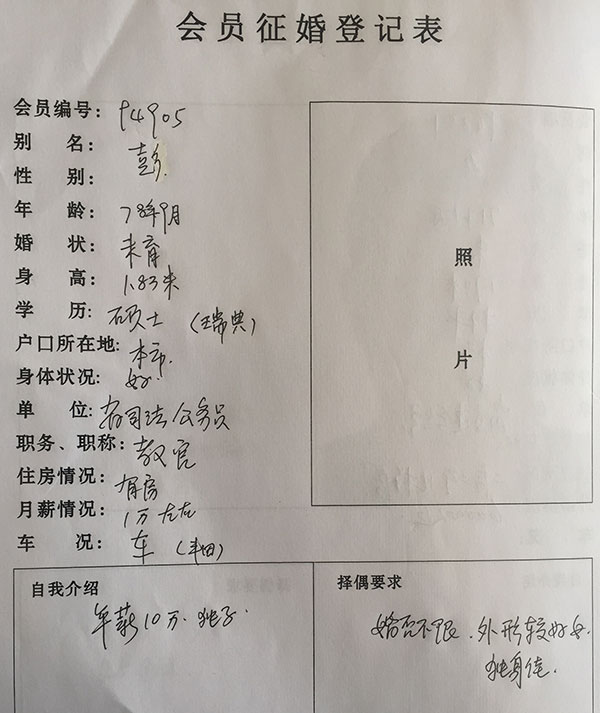 会员征婚登记表
会员编号: 94905
别 名: 彭
性 别:
年 龄: 78年9月
婚 状: 未育
身 高: 1.83米
学 历: 硕士 (瑞典)
户口所在地: 本市.
身体状况: 好.
单 位: 省司法公务员
职务、职称: 教官
住房情况: 有房
月薪情况: 1万左右
车 况: 车 (丰田)
照
片
自我介绍
年薪10万. 独子.
择偶要求
婚否不限. 外形较好女.
独身佳.